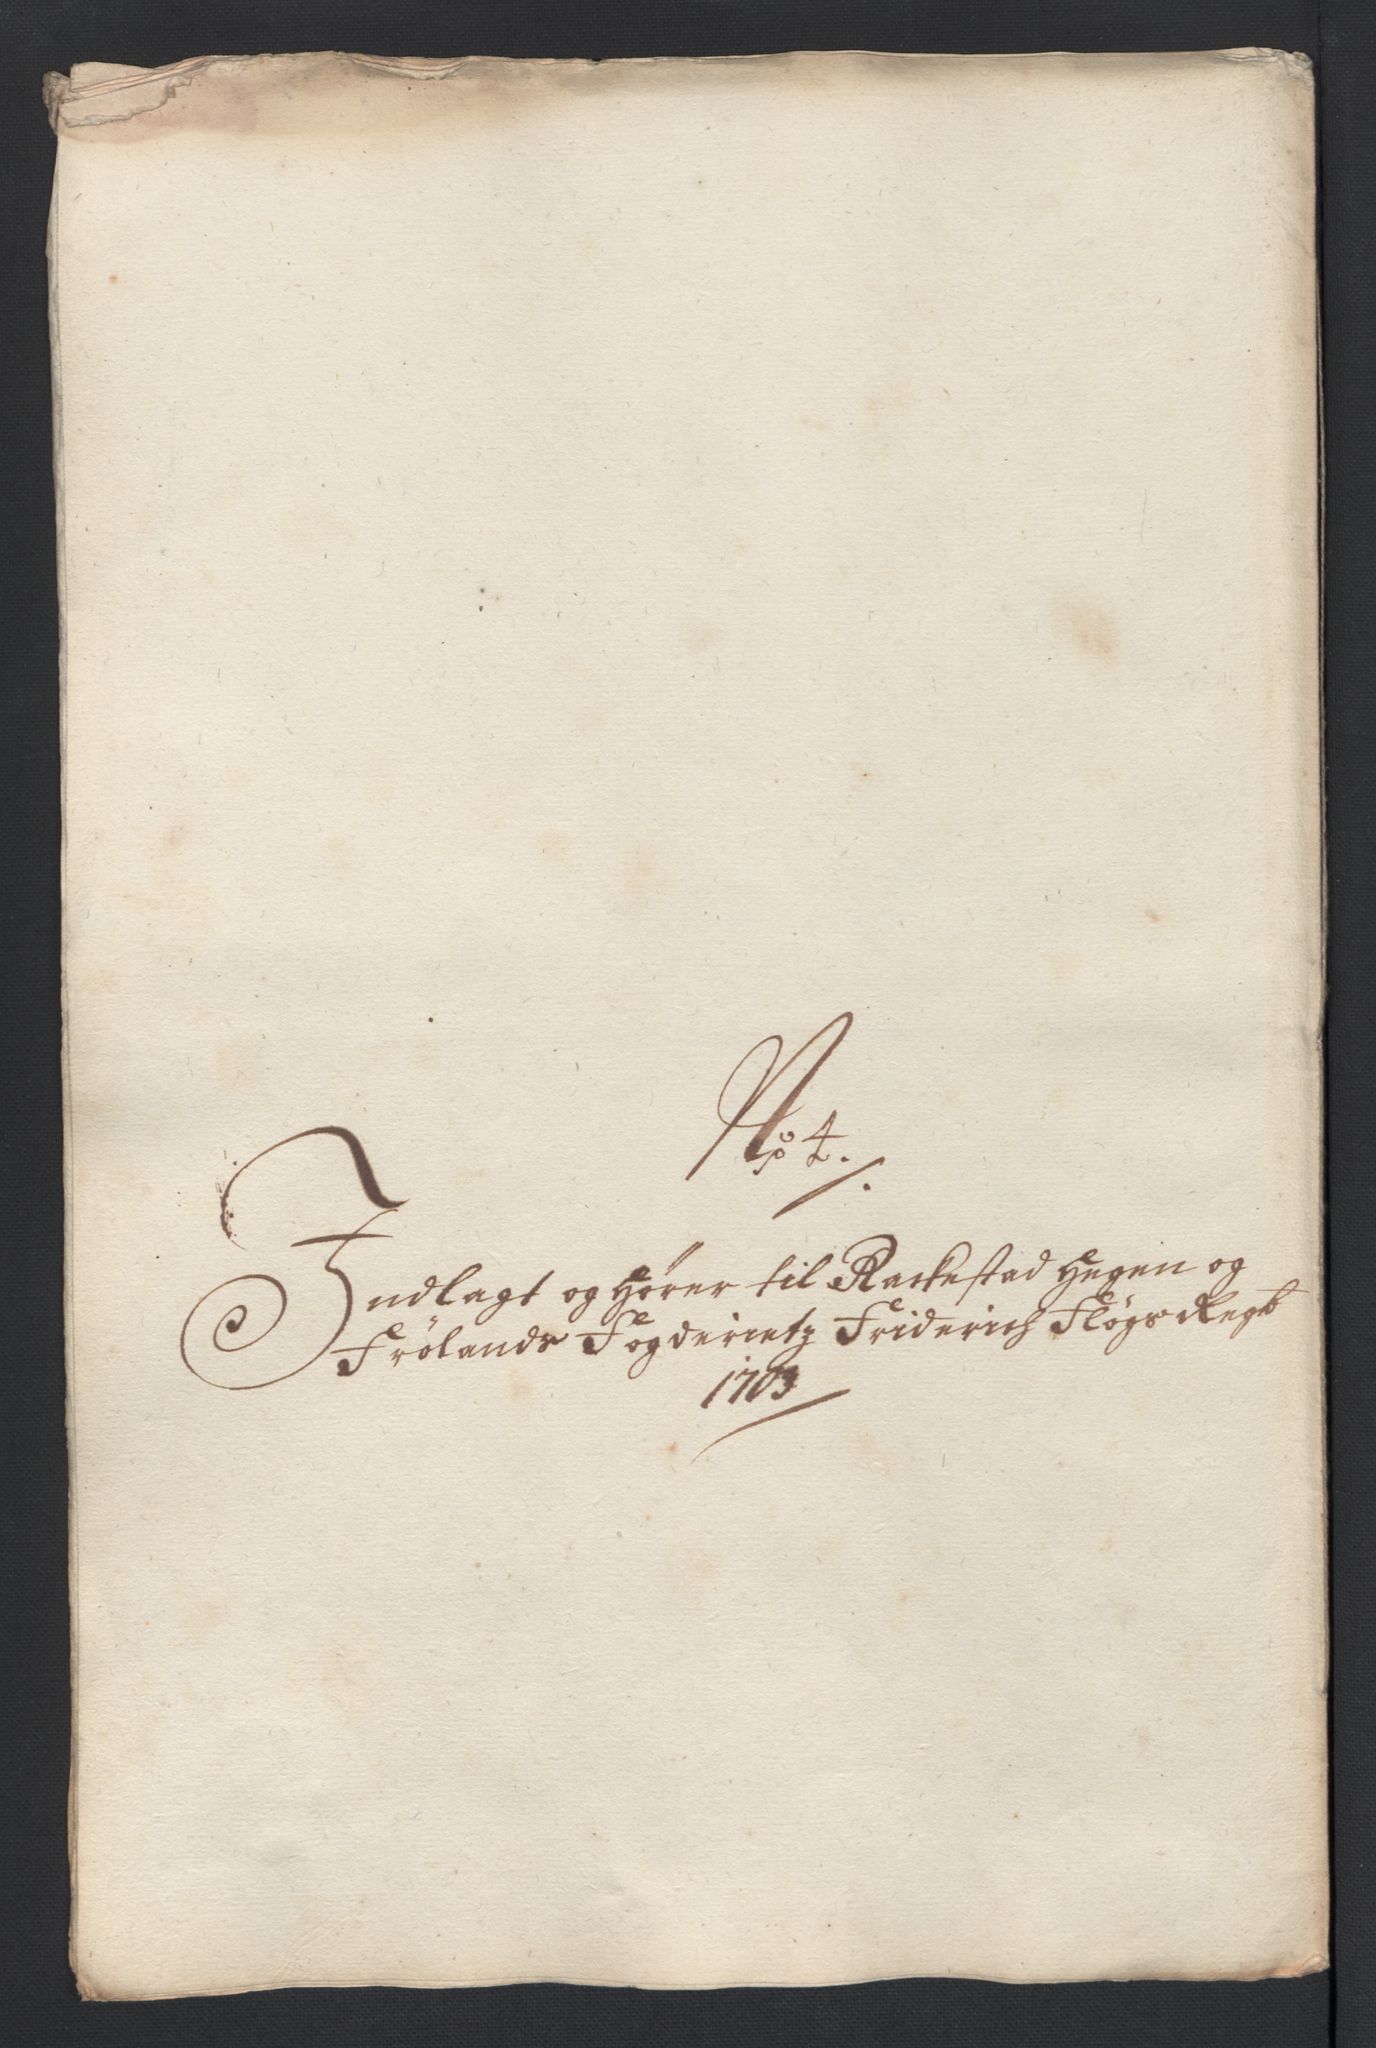 No 4.
Indlagt og Hører til Rackestad Hegen og
Frølands Fogderietz Friderich Fløgs Regb
1703